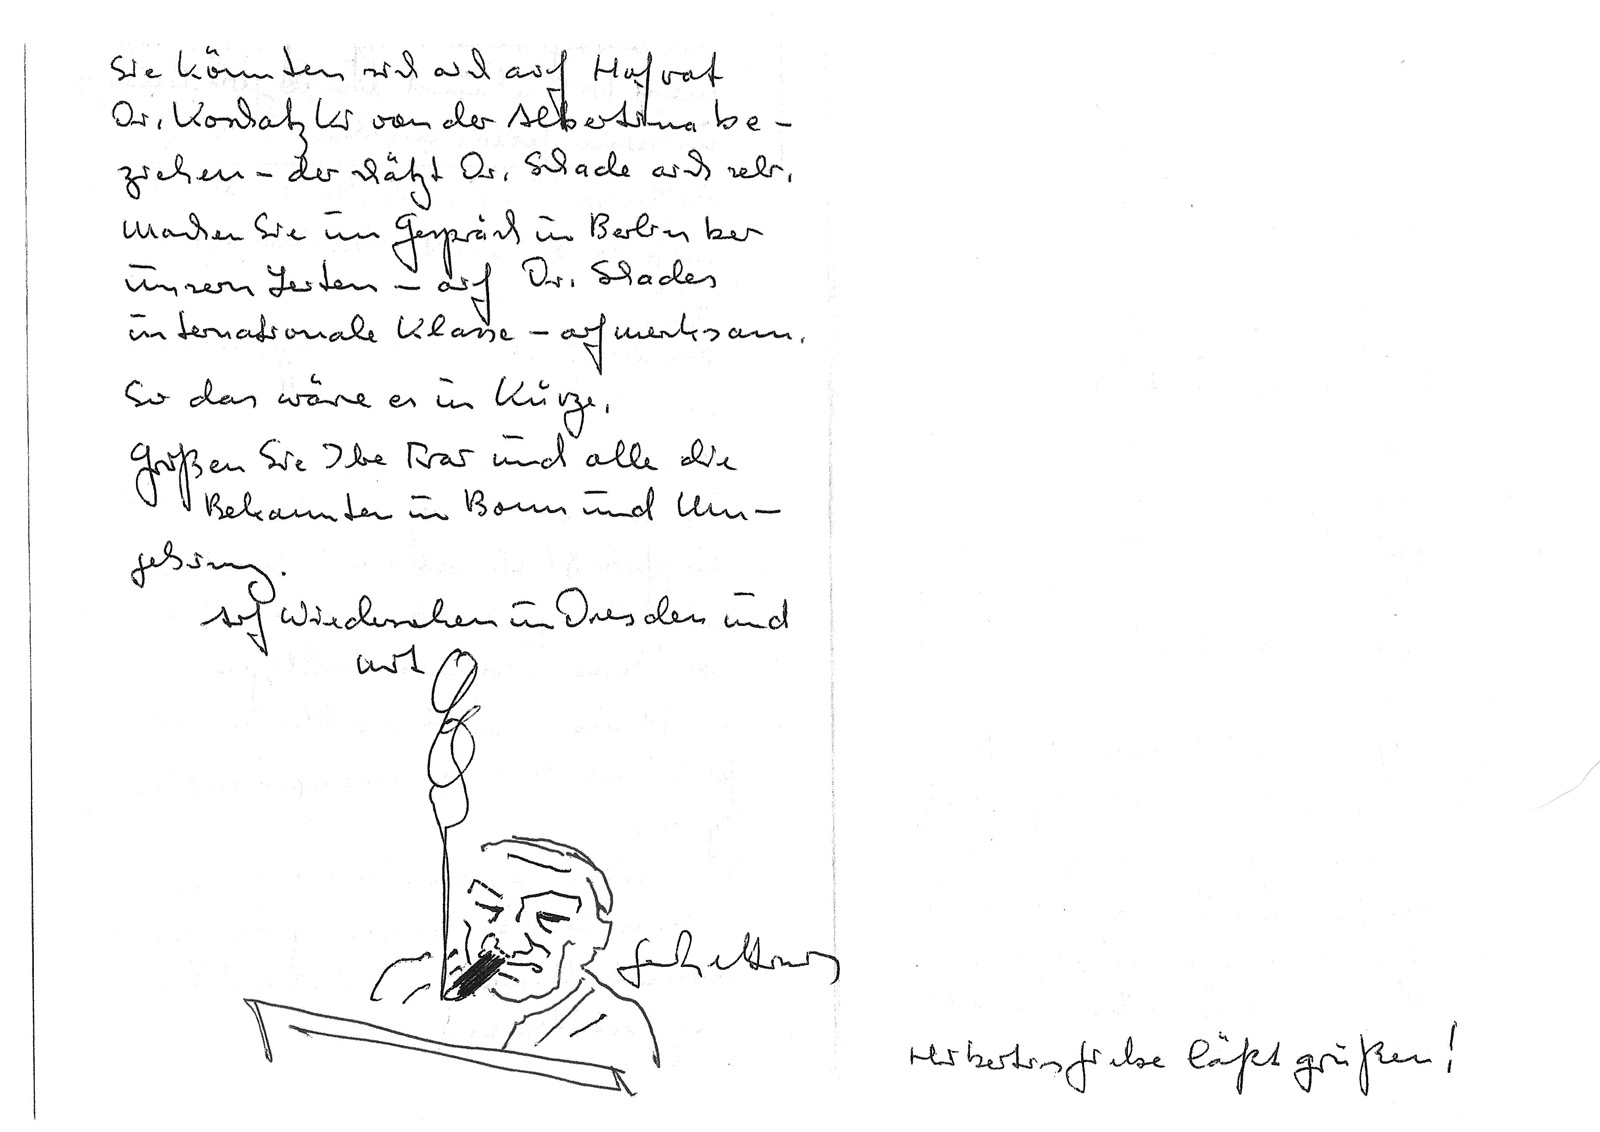 Sie könnten sich auch auf Hofrat
Dr. Koschatzky von der Albertina be-
ziehen – der schätzt Dr. Schade auch sehr.
Machen Sie im Gespräch in Berlin bei
unsern Leuten – auf Dr. Schades
internationale Klasse – aufmerksam.
So das wäre es in Kürze.
Grüßen Sie Ihre Frau und alle die
Bekannten in Bonn und Um-
gebung.
Auf Wiedersehen in Dresden und
mit
läßt grüßen!